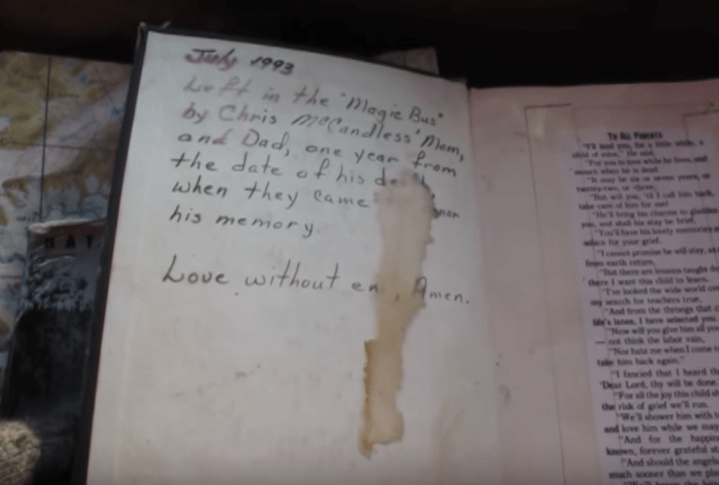 July 1993
Left in the "Magic Bus"
by Chris McCandless' Mom,
and Dad, one year from
the date of his
when they came
his memory.
Love without en , Amen.
TO ALL PARENTS
"I'll lend you, for a little while, a
child of mine," He said,
"For you to love while he lives, and
mourn when he is dead.
"It may be six or seven years, or
twenty-two, or three,
"But will you, 'til I call him back,
take care of him for me?
"He'll bring his charms to gladden
you, and shall his stay be brief,
"You'll have his lovely memories
solace for your grief.
"I cannot promise he will stay,
from earth return,
"But there are lessons taught
there I want this child to learn.
"I've looked the wide world
my search for teachers true,
"And from the throngs that
life's lanes, I have selected you.
"Now will you give him all
— not think the labor vain,
"Nor hate me when I come
take him back again."
"I fancied that I heard
'Dear Lord, thy will be done.
"For all the joy this child
the risk of grief we'll run.
"We'll shower him with
and love him while we may
"And for the
known, forever grateful
"And should the angels
much sooner than we